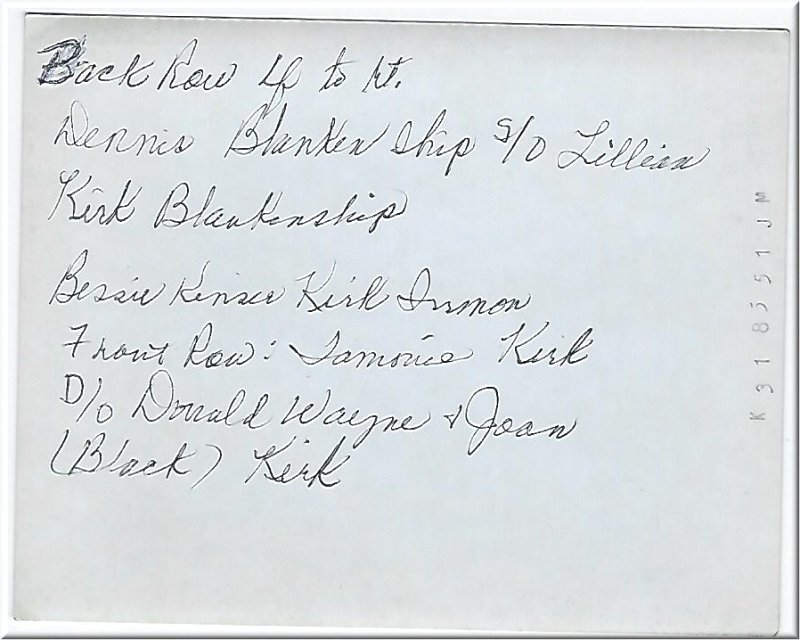 Back Row Lf to Rt.
Dennis Blanken ship S/O Lillian
Kirk Blankenship
Bessie Kinser Kirk
Front Row: Kirk
D/O Donald Wayne & Joan
(Black) Kirk
K318551JM